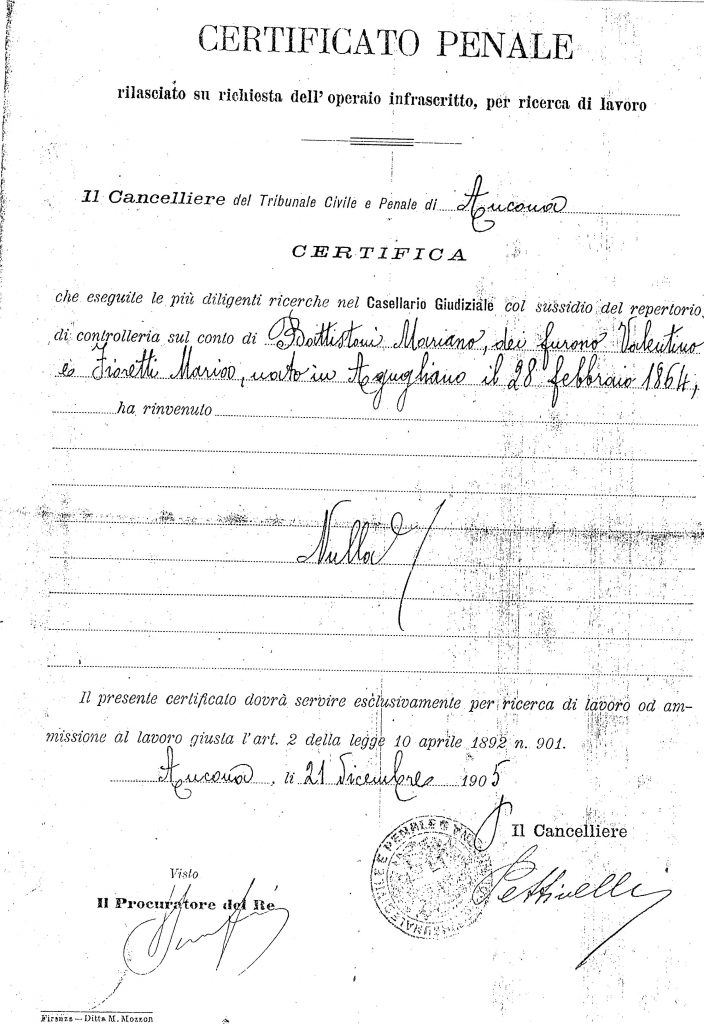 CERTIFICATO PENALE
rilasciato su richiesta dell' operaio infrascritto, per ricerca di lavoro
Il Cancelliere del Tribunale Civile e Penale di Ancona
CERTIFICA
che eseguite le più diligenti ricerche nel Casellario Giudiziale col sussidio del repertorio
di controlleria sul conto di Battistoni Mariano, dei furono Valentino
e Fioretti Maria, nato in Agugliano il 28 febbraio 1864,
ha rinvenuto
Nulla
Il presente certificato dovrà servire esclusivamente per ricerca di lavoro od am-
missione al lavoro giusta l'art. 2 della legge 10 aprile 1892 n. 901.
Ancona, li 21 Dicembre 1905
Il Cancelliere
Pettinelli
Visto
Il Procuratore del Re
Firenze — Ditta M. Mozzon